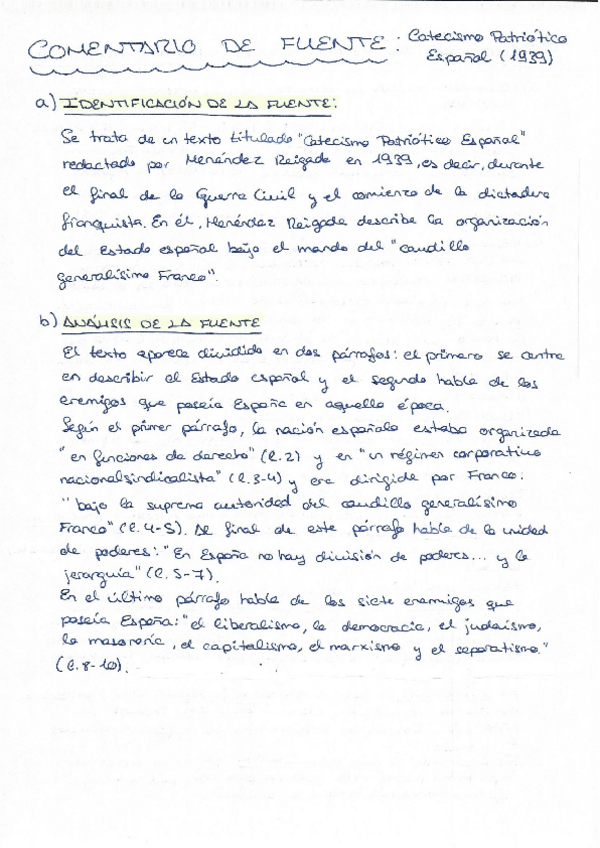 COMENTARIO DE FUENTE: Catecismo Patriótico
Español (1939)
a) IDENTIFICACIÓN DE LA FUENTE:
Se trata de un texto titulado "Catecismo Patriótico Español"
redactado por Menéndez Reigada en 1939, es decir, durante
el final de la Guerra Civil y el comienzo de la dictadura
franquista. En él, Menéndez Reigada describe la organización
del Estado español bajo el mando del "caudillo
generalísimo Franco".
b) ANÁLISIS DE LA FUENTE
El texto aparece dividido en dos párrafos: el primero se centra
en describir al Estado español y el segundo habla de los
enemigos que poseía España en aquella época.
Según el primer párrafo, la nación española estaba organizada
"en funciones de derecho" (l.2) y en "un régimen corporativo
nacionalsindicalista" (l.3-4) y era dirigida por Franco:
"bajo la suprema autoridad del caudillo generalísimo
Franco" (l.4-5). Al final de este párrafo habla de la unidad
de poderes: "En España no hay división de poderes... y la
jerarquía" (l.5-7).
En el último párrafo habla de los siete enemigos que
poseía España: "el liberalismo, la democracia, el judaísmo,
la masonería, el capitalismo, el marxismo y el separatismo."
(l.8-10).